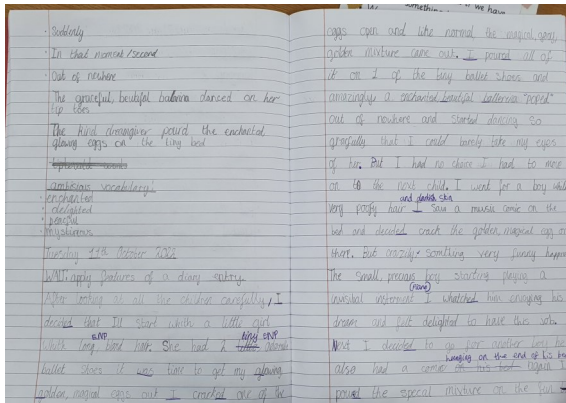 something if we have
· Suddenly
· In that moment/second
· Out of nowhere
The graceful, beutiful balarina danced on her
tip toes.
The kind dreamgiver pourd the enchanted
glowing eggs on the tiny bed
ambitious vocabulary:
· enchanted
· delighted
· peaceful
· mysterious
Tuesday 11th October 2022
WALT: apply features of a diary entry.
After looking at all the children carefully, I
decided that Ill start whith a little girl
ENP tiny ENP
whith long blond hair. She had 2
ballet shoes it was time to get my glowing
golden, magical eggs out I cracked one of the
eggs open and like normal the magical, gooey,
golden mixture came out. I poured all of
it on 1 of the tiny ballet shoes and
amazingly a enchanted beautiful ballerina "poped"
out of nowhere and started dancing so
gracfully that I could barely take my eyes
of her. But I had no choice I had to move
on to the next child. I went for a boy whith
and darkish skin
very poofy hair I saw a music comic on the
bed and decided crack the golden, magical egg on
there. But crazily somthing very funny happend
The small, precious boy starting playing a
(name)
unusual instrument I whatched him enjoying his
dream and felt delighted to have this job.
Next I decided to go for another boy he
hanging on the end of his bed
also had a comic on his bed again I
poured the special mixture on the